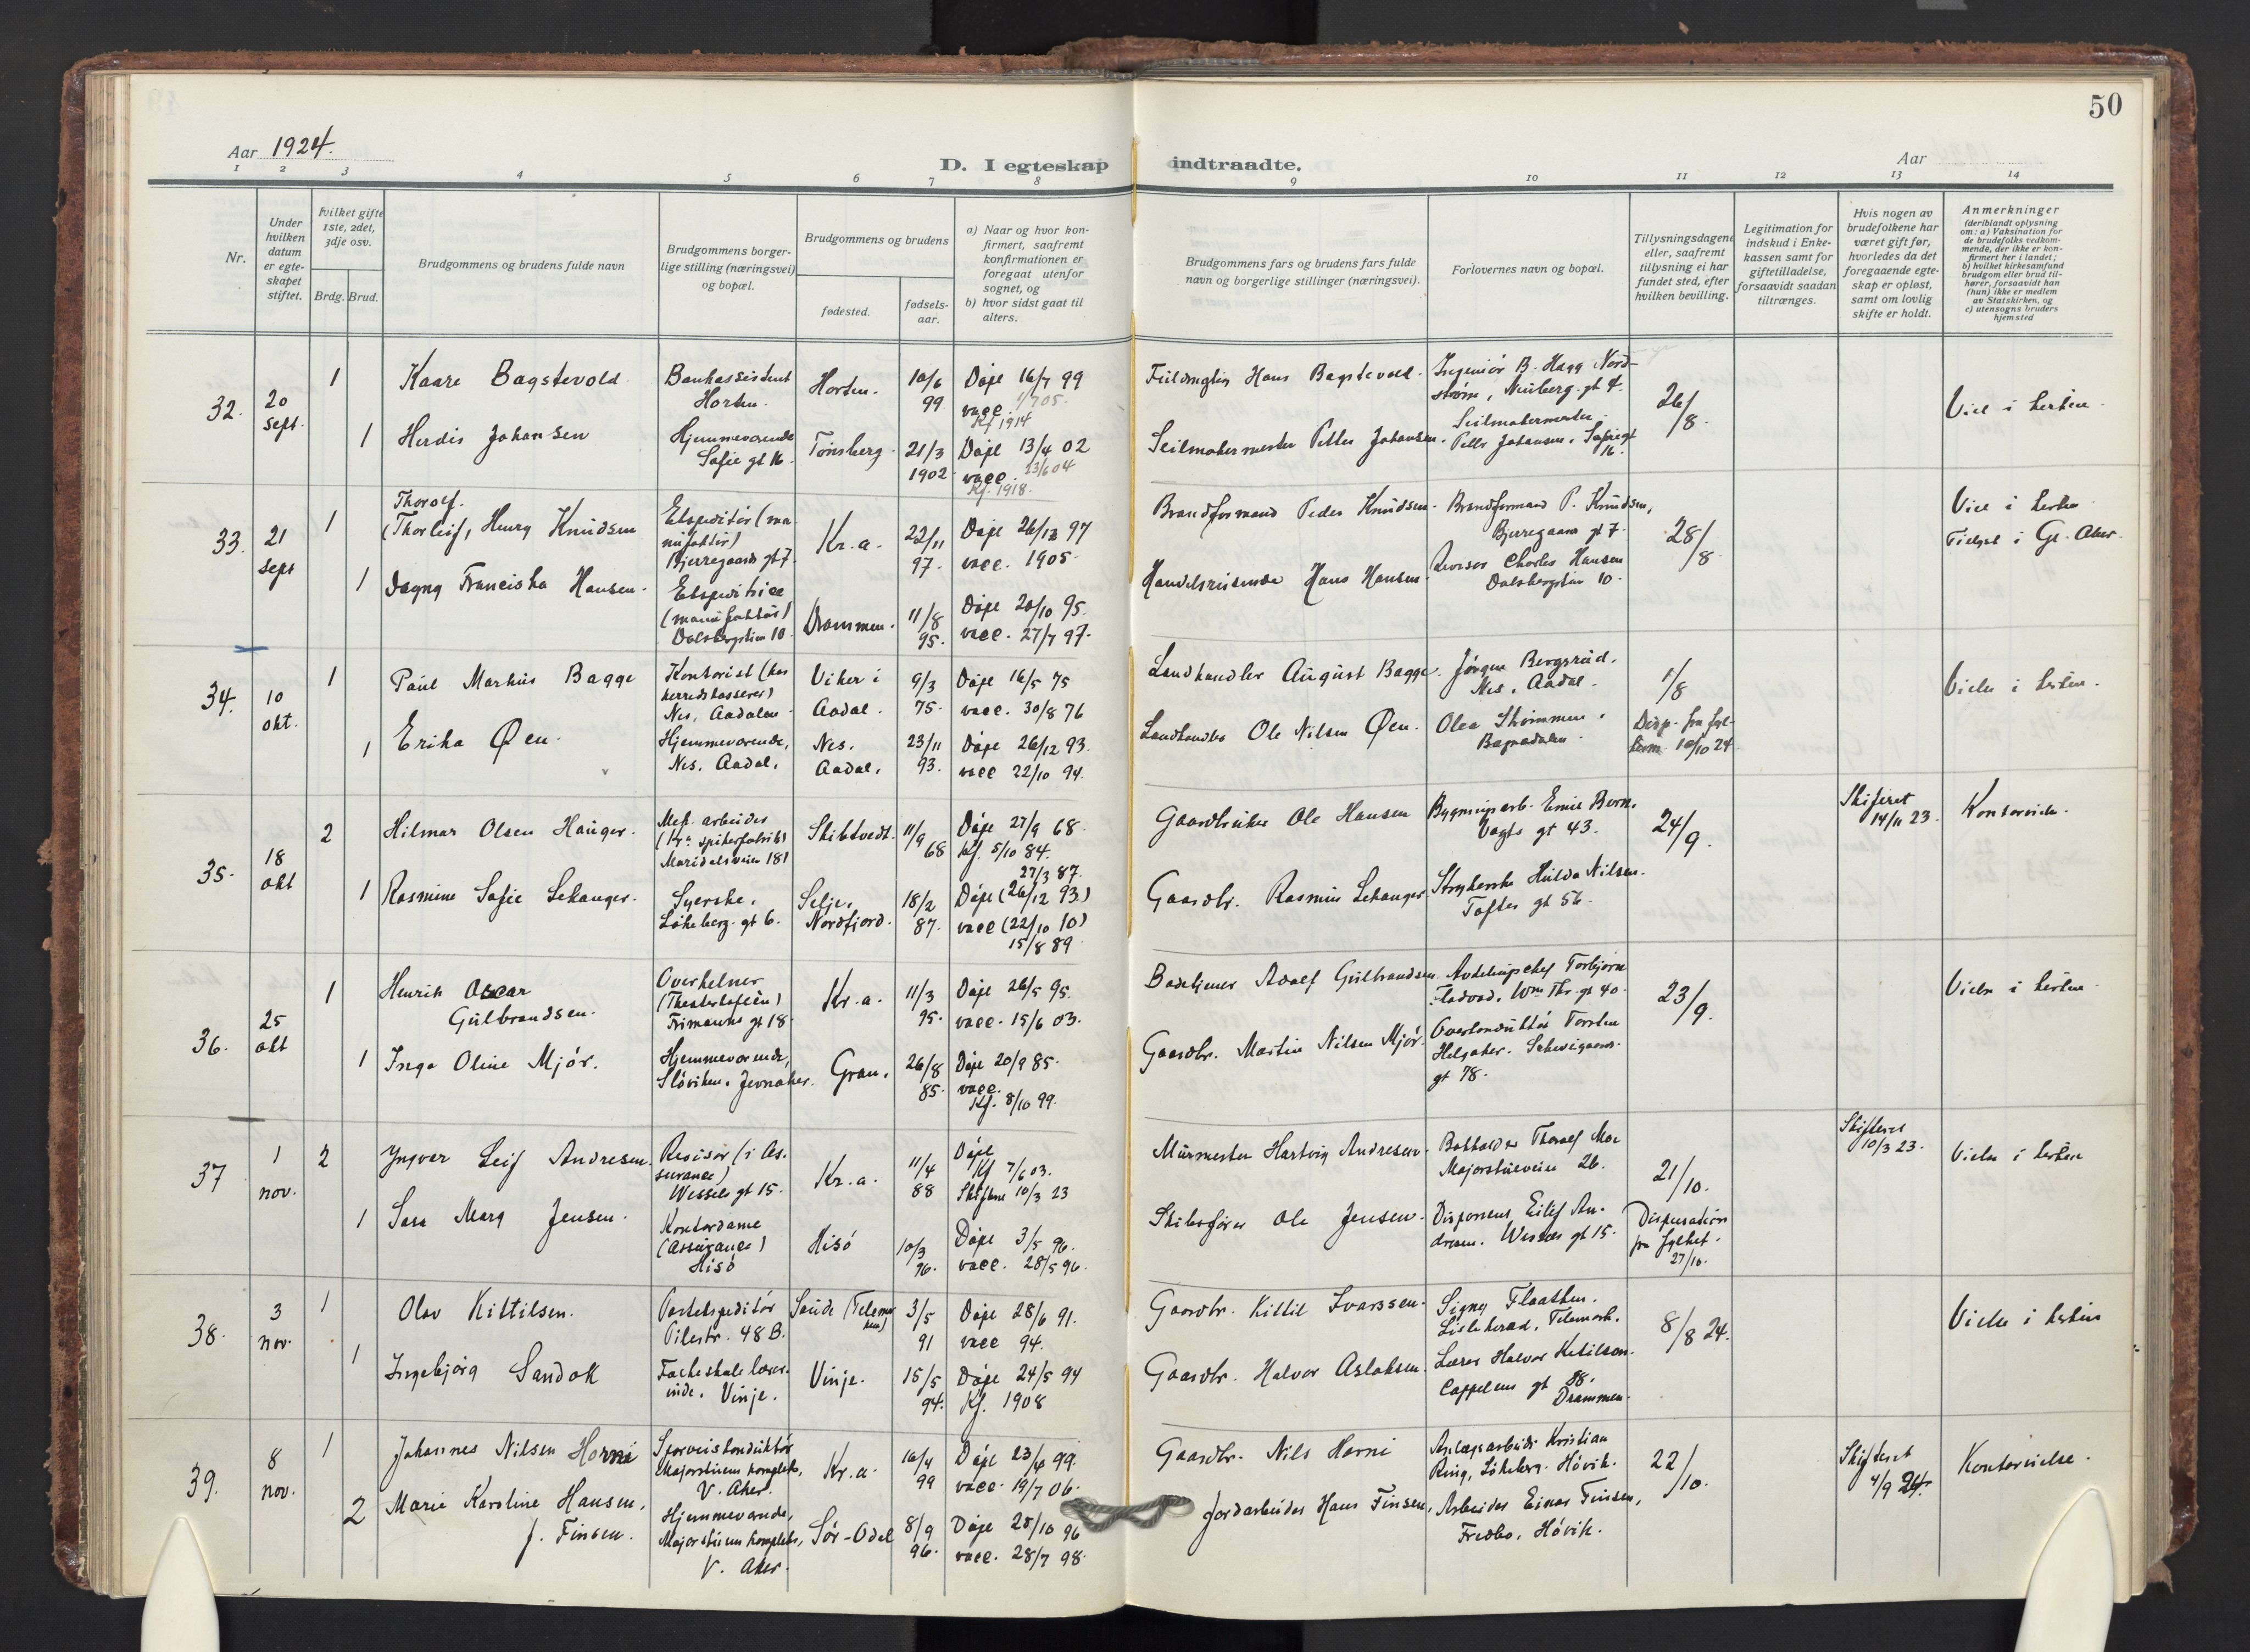 50
Aar 1924.
D. I egteskap indtraadte.
Aar
1 2 3 4 5 6 7 8 9 10 11 12 13 14
Nr.
Under hvilken datum er egteskapet stiftet.
hvilket gifte 1ste, 2det, 3dje osv.
Brdg. Brud.
Brudgommens og brudens fulde navn
Brudgommens borgerlige stilling (næringsvei) og bopæl.
Brudgommens og brudens
fødested.
fødsels-aar.
a) Naar og hvor konfirmert, saafremt konfirmationen er foregaat utenfor sognet, og
b) hvor sidst gaat til alters.
Brudgommens fars og brudens fars fulde navn og borgerlige stillinger (næringsvei).
Forlovernes navn og bopæl.
Tillysningsdagene eller, saafremt tillysning ei har fundet sted, efter hvilken bevilling.
Legitimation for indskud i Enkekassen samt for giftetilladelse, forsaavidt saadan tiltrænges.
Hvis nogen av brudefolkene har været gift før, hvorledes da det foregaaende egteskap er opløst, samt om lovlig skifte er holdt.
Anmerkninger (deriblandt oplysning om: a) Vaksination for de brudefolks vedkommende, der ikke er konfirmert her i landet; b) hvilket kirkesamfund brudgom eller brud tilhører, forsaavidt han (hun) ikke er medlem av Statskirken, og c) utensogns bruders hjemsted
32. 20 sept. 1 Kaare Bagstevold Bankassistent Horten. Horten. 10/6 99 Døpt 16/7 99 vacc. 1/7 05. Kf 1914
Hans Bagstevold. Ingeniør B. Hagg Nordstrøm, Neuberg. gt 4. 26/8 Viet i kirken
1 Herdis Johansen Hjemmeværende Sofie gt 16. Tønsberg. 21/3 1902 Døpt 13/4 02 vacc. 23/6 04 Kf. 1918.
Seilmakermester Petter Johansen. Seilmakermester Petter Johansen. Sofiegt 16.
33. 21 sept 1 Thorolf. (Thorleif) Henry Knudsen Ekspeditør (manufaktur) Bjerregaards gt 7. Kr.a. 22/11 97. Døpt 26/12 97 vacc. 1905.
Brandformand Peder Knudsen. Brandformand P. Knudsen, Bjerregaards gt 7. 28/8 Viet i kirken Tillyst i Gl. Aker.
1 Dagny Franciska Hansen. Ekspeditrice (manufaktur) Dalsbergstien 10. Drammen. 11/8 95. Døpt 20/10 95. vacc. 27/7 97.
Handelsreisende Hans Hansen. Revisor Charles Hansen Dalsbergstien 10.
34. 10 okt. 1 Paul Markus Bagge Kontorist (hos herredskasserer) Nes, Aadalen. Viker i Aadal. 9/3 75. Døpt 16/5 75 vacc. 30/8 76
Landhandler August Bagge. Jørgen Bergsrud. Nes, Aadal. 1/8 Vielse i kirken.
1 Erika Øen. Hjemmeværende, Nes, Aadal. Nes. Aadal. 23/11 93. Døpt 26/12 93. vacc 22/10 94.
Landhandler Ole Nilsen Øen. Olea Strømmen. Bagnadalen. Disp. fra 10/10 24
35. 18 okt 2 Hilmar Olsen Hauger. Mek. arbeider (Kr.a spikerfabrik) Maridalsveien 181 Skibtvedt. 11/9 68 Døpt 27/9 68. Kf. 5/10 84. 27/3 87.
Gaardbruker Ole Hansen Bygningsarb. Emil Bern. Vogts gt 43. 24/9. Skiftet 14/11 23. Kontorvielse.
1 Rasmine Sofie Sekanger. Syerske. Løkeberg. gt 6. Selje, Nordfjord. 18/2 87. Døpt (26/12 93) vacc (22/10 10) 15/8 89
Gaardbr. Rasmus Sekanger. Strykerske Hulda Nilsen. Toftes gt 56.
36. 25 okt 1 Henrik Oscar Gulbrandsen. Overkelner (Theaterkafeen) Frimanns gt 18. Kr.a. 11/3 95. Døpt 26/5 95. vacc. 15/6 03.
Badetjener Adolf Gulbrandsen. Avdelingschef Torbjørn Fladvad, Wm Thr. gt 40. 23/9. Vielse i kirken.
1 Inga Oline Mjør. Hjemmeværende, Sløviken. Jevnaker. Gran. 26/8 85. Døpt 20/9 85. vacc. Kf. 8/10 99.
Gaardbr. Martin Nilsen Mjør. Overkonduktør Torsten Helgaker. Schweigaards gt 78.
37 1 nov. 2 Yngvar Leif Andresen. Revisor (i Assurance) Wessels gt 15. Kr.a. 11/4 88 Døpt Kf 7/6 03. Skiftene 10/3 23
Murmester Hartvig Andresen. Bokholder Thoralf Moe Majorstueveien 26. 21/10. Skiftet 10/3 23. Vielse i kirken
1 Sara Marg Jensen. Kontordame (Assurance) Hisö Hisö 10/3 96. Døpt 3/5 96. vacc. 28/5 96.
Skibsfører Ole Jensen. Disponent Eilif Andresen. Wessels gt 15. Dispensation fra fylket. 27/10.
38. 3 nov. 1 Olav Kittilsen. Postekspeditør Pilestr. 48 B. Saude (Telemarken) 3/5 91 Døpt 28/6 91. vacc 94.
Gaardbr. Kittil Ivarssen. Signy Flaatten. Lisleherad, Telemark. 8/8 24. Vielse i kirken
1 Ingebjörg Sandok Folkeskolelærerinde. Vinje. Vinje. 15/5 94. Døpt 24/5 94 Kf. 1908
Gaardbr. Halvor Aslaksen. Lærer Halvor Ketilson. Cappelens gt 88. Drammen.
39. 8 nov. 1 Johannes Nilsen Horni Sporveiskonduktør Majorstuens kompleks, V. Aker. Kr.a. 16/4 99 Døpt 23/4 99. vacc. 19/7 06.
Gaardbr. Nils Horni Anlægsarbeider Kristian Ring, Løkeberg. Høvik. 22/10. Skiftet 4/9 24. Kontorvielse.
2 Marie Karoline Hansen, f. Finsen. Hjemmeværende, Majorstuens kompleks, V. Aker. Sør-Odal 8/9 96. Døpt 25/10 96 vacc. 28/7 98.
Jordarbeider Hans Finsen. Arbeider Einar Finsen, Fredbo, Høvik.